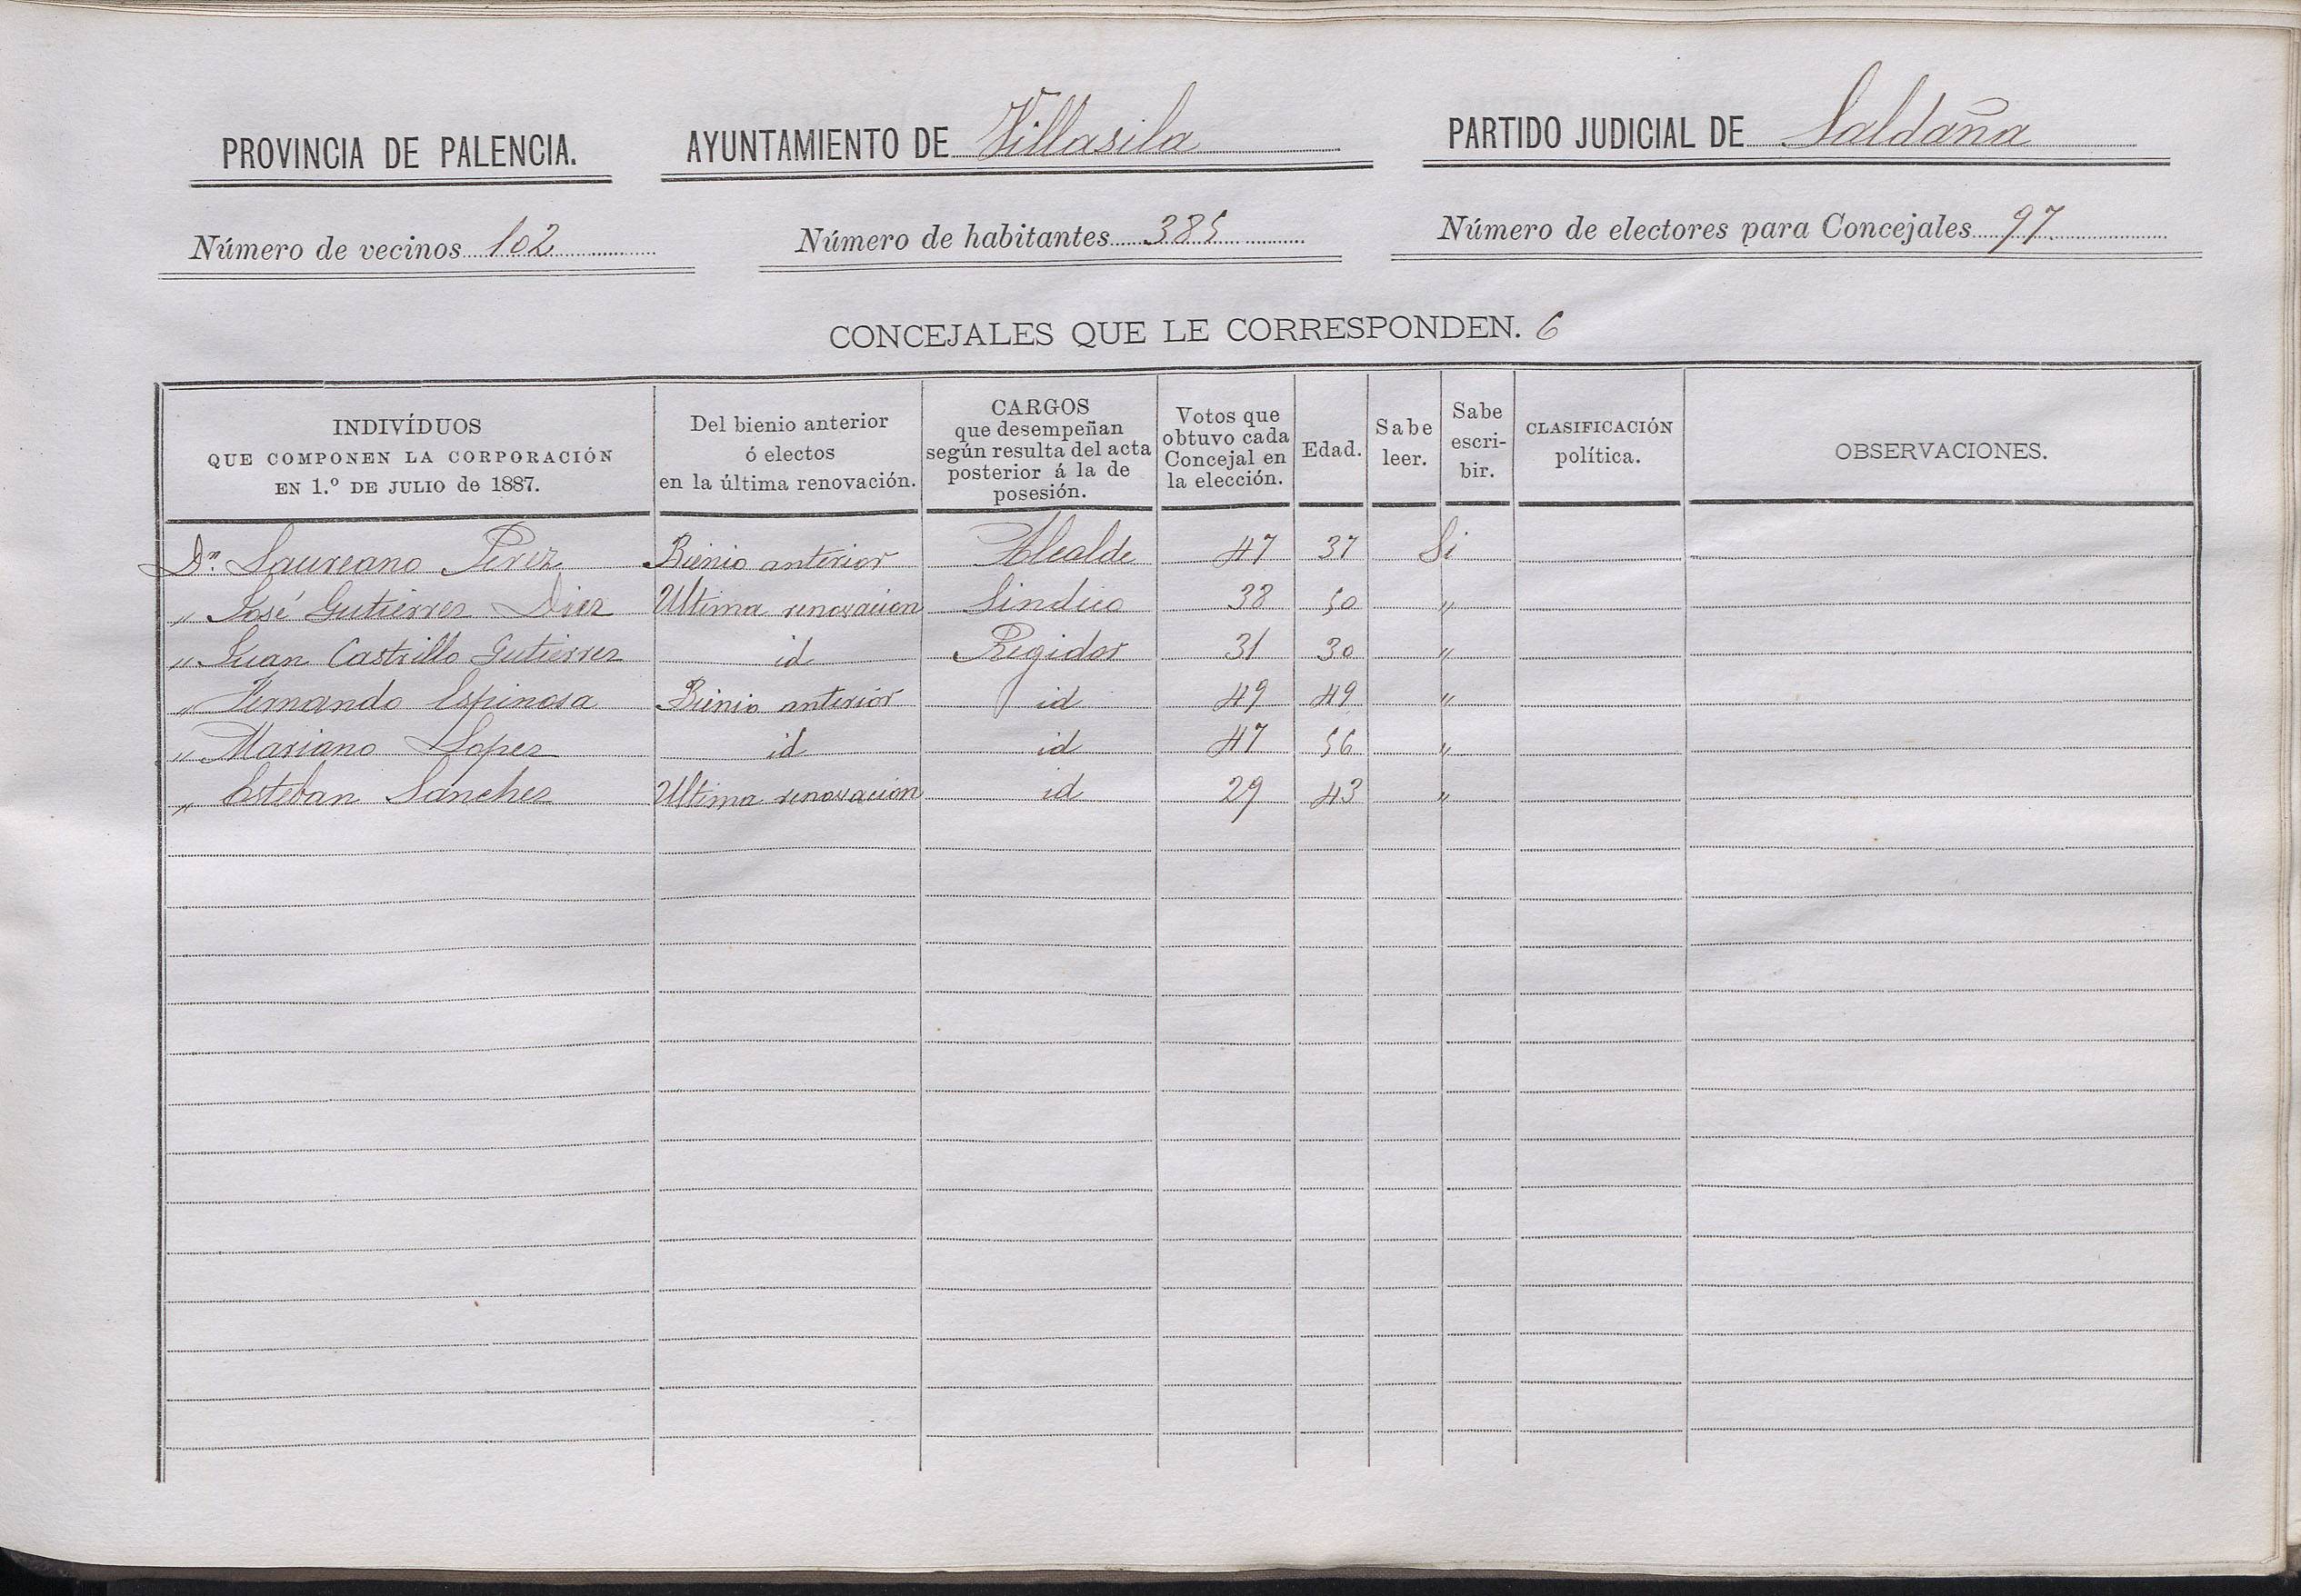 PROVINCIA DE PALENCIA. AYUNTAMIENTO DE Villasila PARTIDO JUDICIAL DE Saldaña
Número de vecinos 102 Número de habitantes 385 Número de electores para Concejales 97
CONCEJALES QUE LE CORRESPONDEN. 6
INDIVÍDUOS
QUE COMPONEN LA CORPORACIÓN
EN 1.º DE JULIO de 1887.
Del bienio anterior
ó electos
en la última renovación.
CARGOS
que desempeñan
según resulta del acta
posterior á la de
posesión.
Votos que
obtuvo cada
Concejal en
la elección.
Edad.
Sabe
leer.
Sabe
escri-
bir.
CLASIFICACIÓN
política.
OBSERVACIONES.
Dn. Laureano Perez Bienio anterior Alcalde 47 37 Si
" José Gutierrez Diez Ultima renovacion Sindico 38 50 "
" Juan Castrillo Gutierrez id Regidor 31 30 "
" Fernando Espinosa Bienio anterior id 49 49 "
" Mariano Lopez id id 47 56 "
" Esteban Sanchez Ultima renovacion id 29 43 "